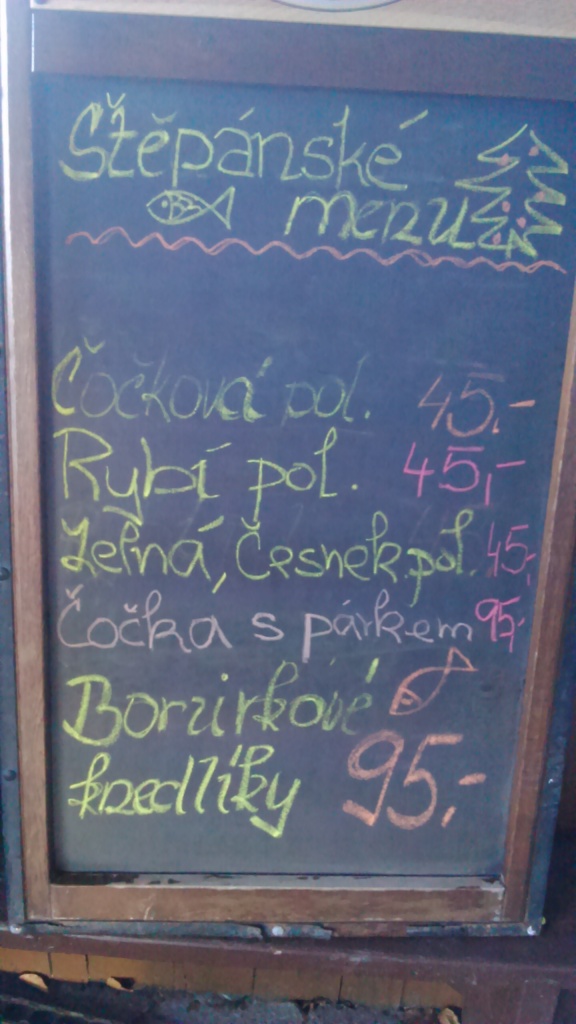 Štěpánské
menu
Čočková pol. 45,-
Rybí pol. 45,-
Zelná, Česnek.pol. 45,-
Čočka s párkem 95,-
Borůvkové
knedlíky 95,-